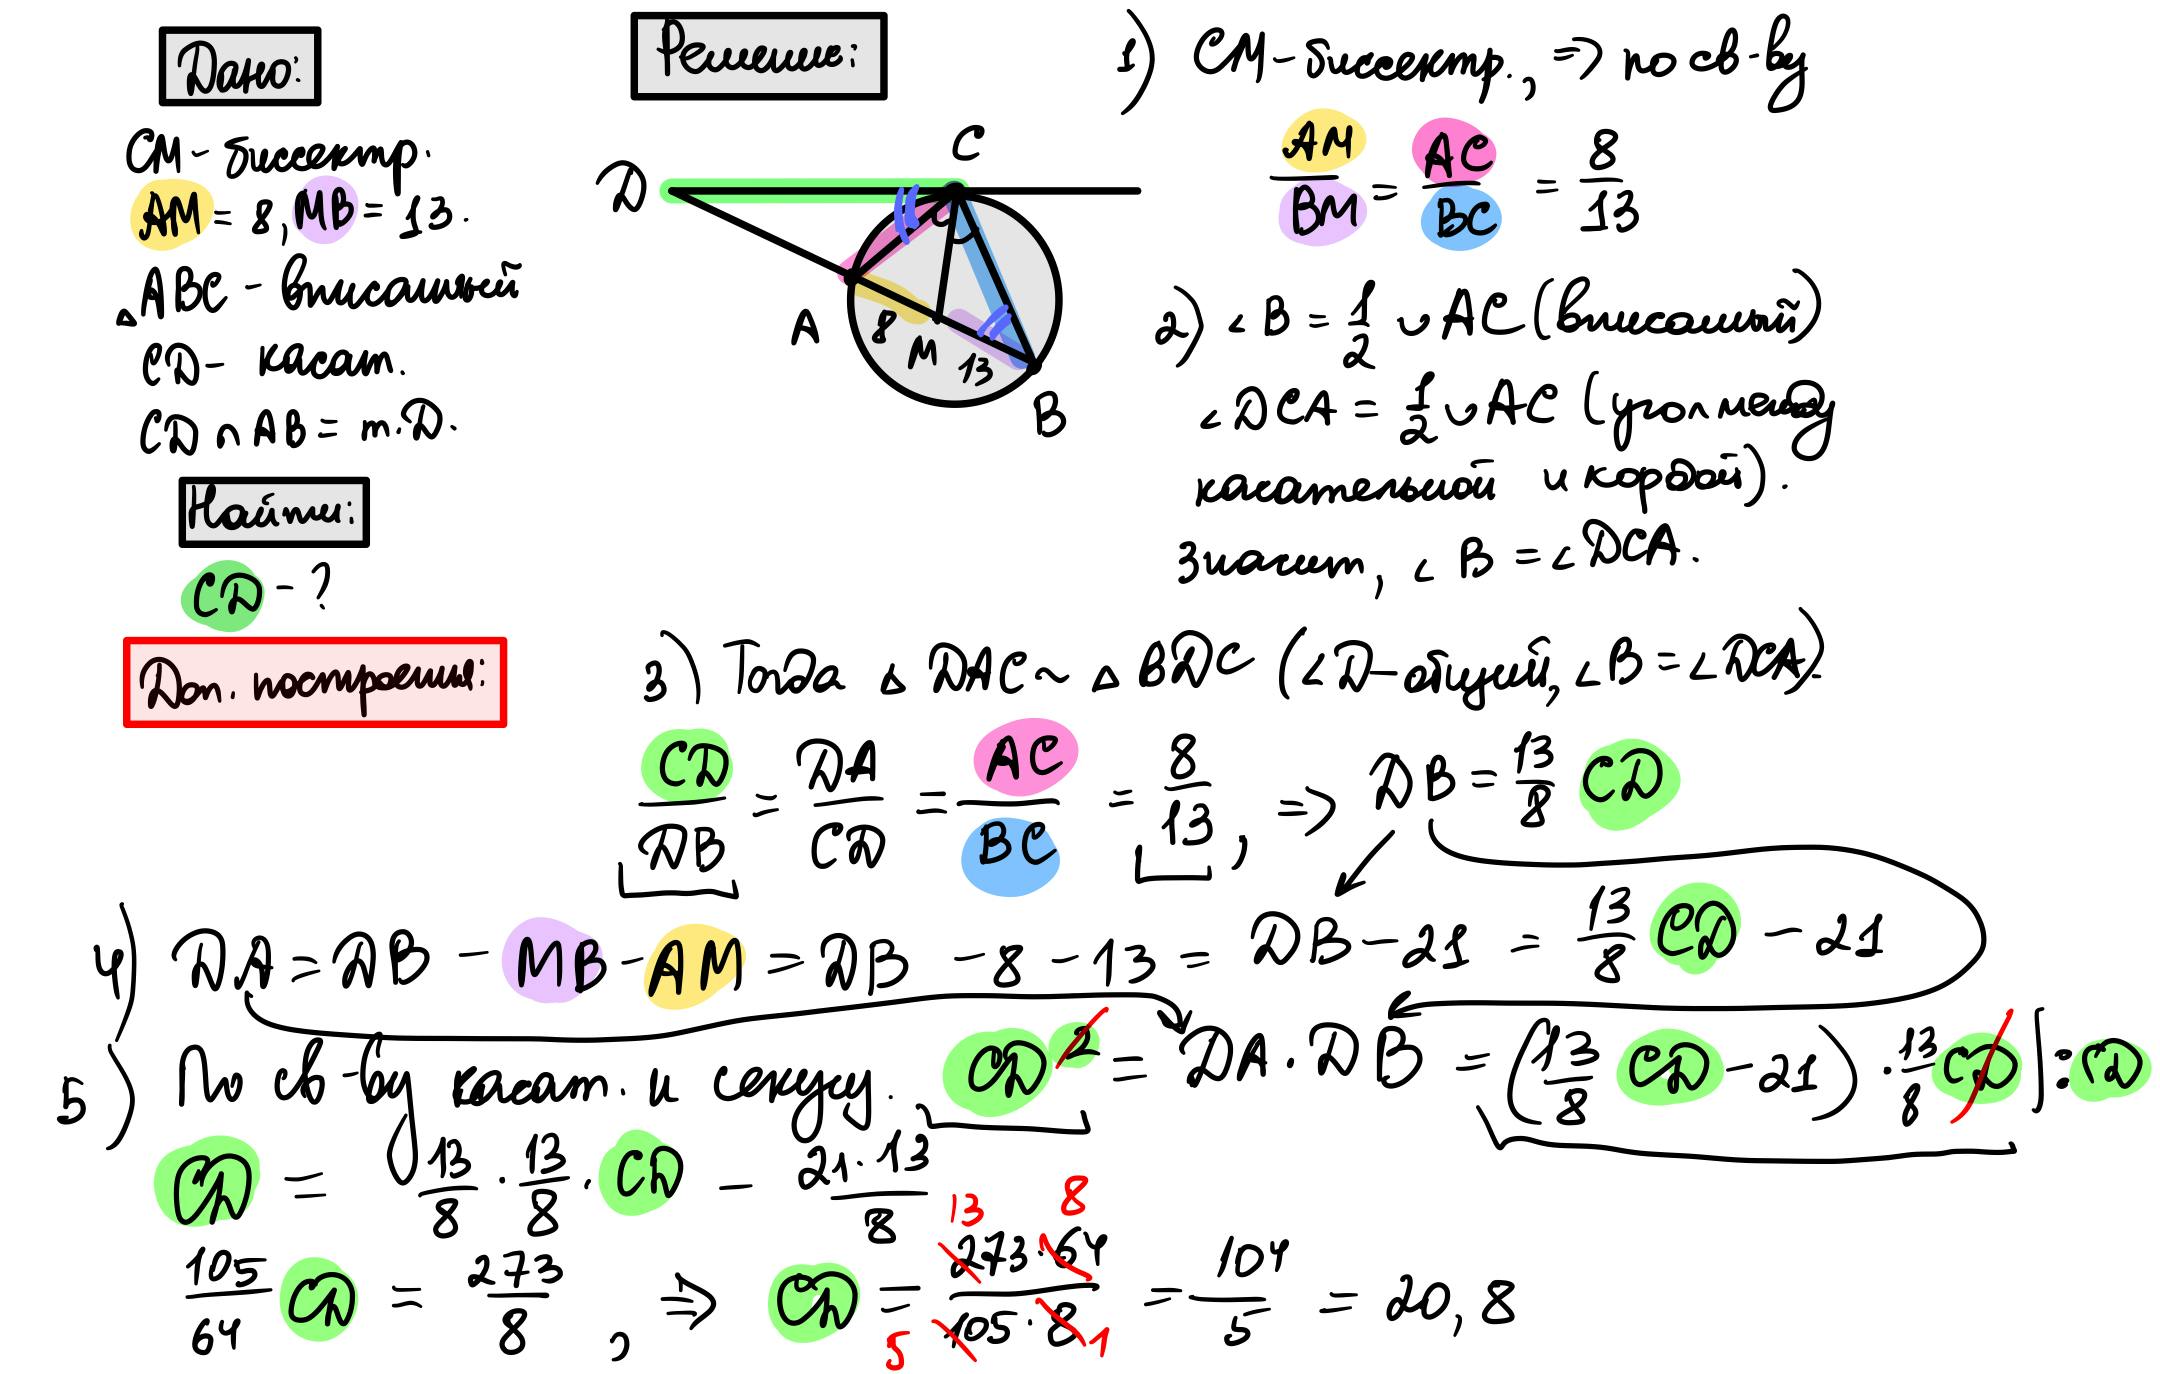 Дано:
СМ - биссектр.
АМ = 8, МВ = 13.
△АВС - вписанный
CD - касат.
CD ∩ AB = т.D.
Найти:
CD - ?
Доп. построения:
Решение:
D
C
A
8
M
13
B
1) СМ - биссектр., => по св-ву
AM/BM = AC/BC = 8/13
2) ∠B = 1/2 ◡AC (вписанный)
∠DCA = 1/2 ◡AC (угол между
касательной и хордой).
Значит, ∠B = ∠DCA.
3) Тогда △DAC ~ △BDC (∠D - общий, ∠B = ∠DCA)
CD/DB = DA/CD = AC/BC = 8/13, => DB = 13/8 CD
4) DA = DB - MB - AM = DB - 8 - 13 = DB - 21 = 13/8 CD - 21
5) По св-ву касат. и секущ. CD² = DA · DB = (13/8 CD - 21) · 13/8 CD | : CD
CD = 13/8 · 13/8 · CD - 21·13/8
13 8
105/64 CD = 273/8, => CD = 273·64/105·8 = 104/5 = 20,8
5 1